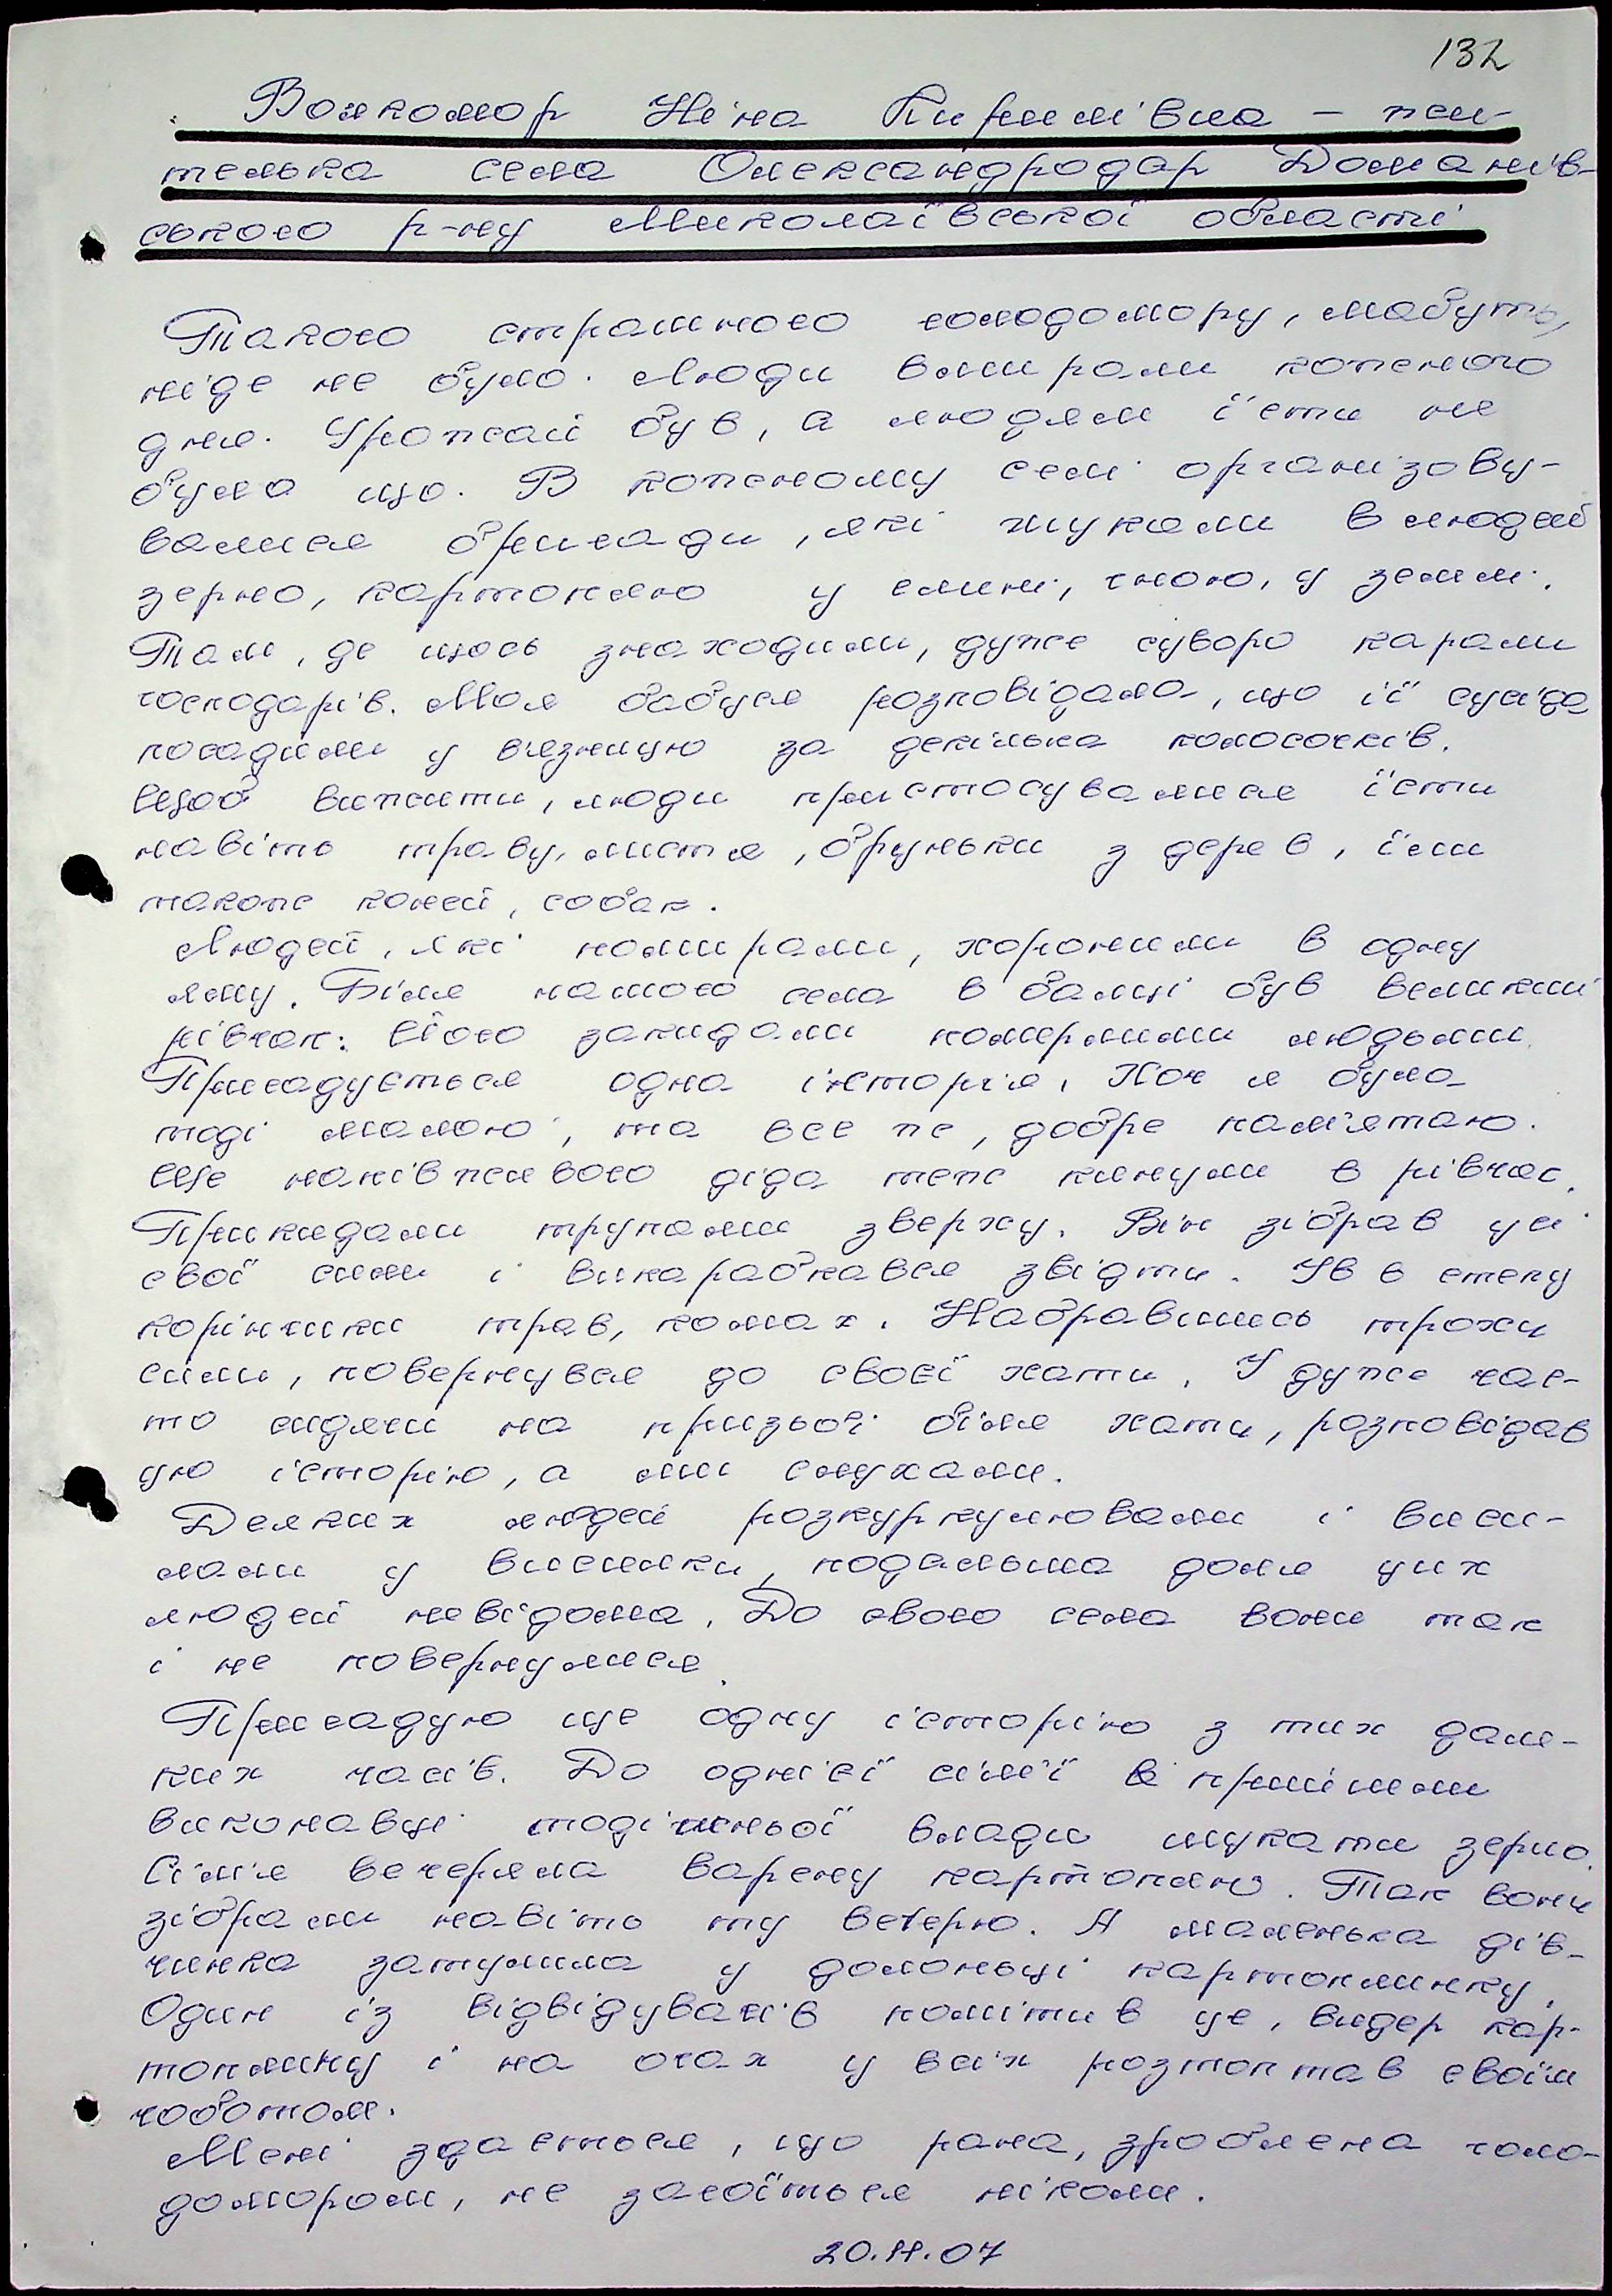 132
Волкомор Ніна Кирилівна – жи-
телька села Олександродар Доманів-
ського р-ну Миколаївської області
Такого страшного голодомору, мабуть,
ніде не було. Люди вмирали кожного
дня. Урожай був, а людям їсти не
було що. В кожному селі організову-
валися бригади, які шукали в людей
зерно, картоплю у глині, гною, у землі.
Там, де щось знаходили, дуже суворо карали
господарів. Моя бабуся розповідала, що її сусіда
посадили у вязницю за декілька колосочків.
Щоб вижити, люди пристосувалися їсти
навіть траву, листя, бруньки з дерев, їли
також коней, собак.
Людей, які помирали, хоронили в одну
яму. Біля нашого села в балці був великий
рівчак. Його закидали померлими людьми.
Пригадується одна історія. Хоч я була
тоді малою, та все же, добре пам'ятаю.
Ще напівживого діда теж кинули в рівчак.
Прикидали трупами зверху. Він зібрав усі
свої сили і викарабкався звідти. Їв в степу
корінчики трав, комах. Набравшись трохи
сили, повернувся до своєї хати. І дуже час-
то сидячи на призьбі біля хати, розповідав
цю історію, а ми слухали.
Деяких людей розкуркулювали і виси-
лали у висилки, подальша доля цих
людей невідома. До свого села вони так
і не повернулися.
Пригадую ще одну історію з тих дале-
ких часів. До однієї сім'ї прийшли
виконавці тодішньої влади шукати зерно.
Сім'я вечеряла варену картоплю. Так вони
зібрали навіть ту вечерю. А маленька дів-
чинка затулила у долоньці картоплинку.
Один із відвідувачів помітив це, видер кар-
топлинку і на очах у всіх розтоптав своїм
чоботом.
Мені здається, що рана, зроблена голо-
домором, не загоїться ніколи.
20.11.07